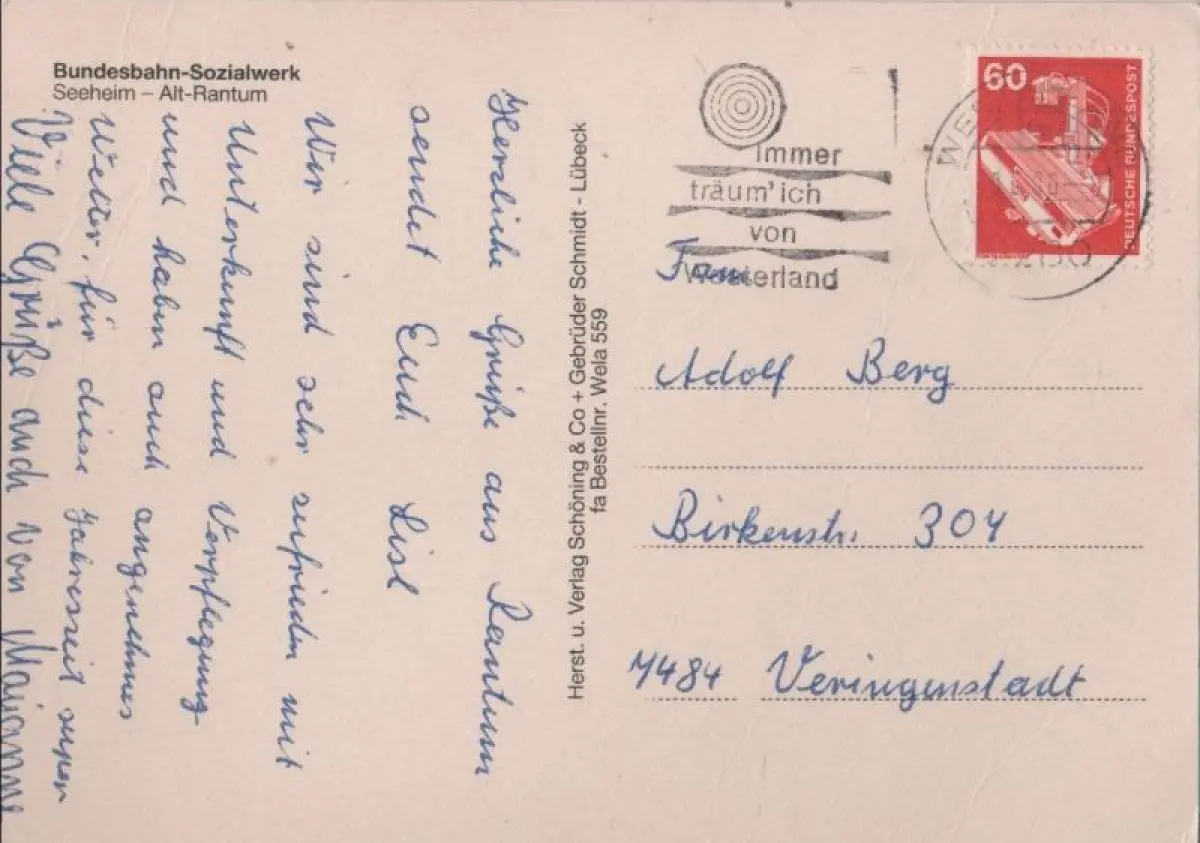 Bundesbahn-Sozialwerk
Seeheim – Alt-Rantum
Herzliche Grüße aus Rantum
sendet Euch Lisl
Wir sind sehr zufrieden mit
Unterkunft und Verpflegung
und haben auch angenehmes
Wetter, für diese Jahreszeit super
Viele Grüße auch von Marianne
Herst. u. Verlag Schöning & Co + Gebrüder Schmidt - Lübeck
fa Bestellnr. Wela 559
immer
träum' ich
von
Westerland
60
DEUTSCHE BUNDESPOST
Fam.
Adolf Berg
Birkenstr. 304
7484 Veringenstadt